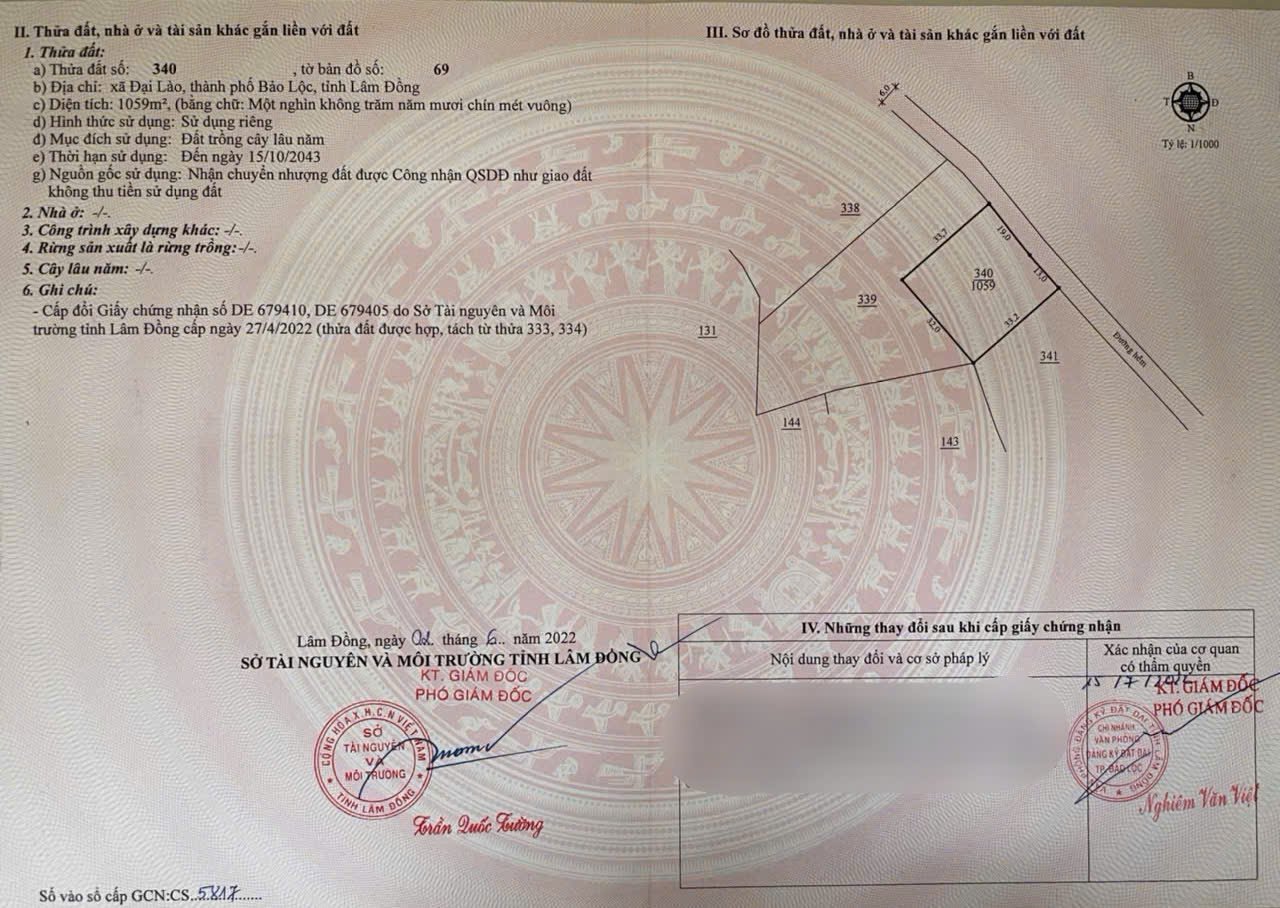 II. Thửa đất, nhà ở và tài sản khác gắn liền với đất
1. Thửa đất:
a) Thửa đất số: 340 , tờ bản đồ số: 69
b) Địa chỉ: xã Đại Lào, thành phố Bảo Lộc, tỉnh Lâm Đồng
c) Diện tích: 1059m², (bằng chữ: Một nghìn không trăm năm mươi chín mét vuông)
d) Hình thức sử dụng: Sử dụng riêng
đ) Mục đích sử dụng: Đất trồng cây lâu năm
e) Thời hạn sử dụng: Đến ngày 15/10/2043
g) Nguồn gốc sử dụng: Nhận chuyển nhượng đất được Công nhận QSDĐ như giao đất
không thu tiền sử dụng đất
2. Nhà ở: -/-.
3. Công trình xây dựng khác: -/-.
4. Rừng sản xuất là rừng trồng:-/-.
5. Cây lâu năm: -/-.
6. Ghi chú:
- Cấp đổi Giấy chứng nhận số DE 679410, DE 679405 do Sở Tài nguyên và Môi
trường tỉnh Lâm Đồng cấp ngày 27/4/2022 (thửa đất được hợp, tách từ thửa 333, 334)
Lâm Đồng, ngày 02 tháng 6.. năm 2022
SỞ TÀI NGUYÊN VÀ MÔI TRƯỜNG TỈNH LÂM ĐỒNG
KT. GIÁM ĐỐC
PHÓ GIÁM ĐỐC
CỘNG HÒA X.H.C.N VIỆT NAM
SỞ
TÀI NGUYÊN
VÀ
MÔI TRƯỜNG
TỈNH LÂM ĐỒNG
Trần Quốc Tường
Số vào sổ cấp GCN:CS..5817.......
III. Sơ đồ thửa đất, nhà ở và tài sản khác gắn liền với đất
B
T Đ
N
Tỷ lệ: 1/1000
6,0
338
33,7
19,0
340
1059
13,0
339
32,0
33,2
131
341
Đường hẻm
144
143
IV. Những thay đổi sau khi cấp giấy chứng nhận
Nội dung thay đổi và cơ sở pháp lý
Xác nhận của cơ quan
có thẩm quyền
15/7/2022
KT. GIÁM ĐỐC
PHÓ GIÁM ĐỐC
VĂN PHÒNG ĐĂNG KÝ ĐẤT ĐAI TỈNH LÂM ĐỒNG
CHI NHÁNH
VĂN PHÒNG
ĐĂNG KÝ ĐẤT ĐAI
TP. BẢO LỘC
Nghiêm Văn Việt